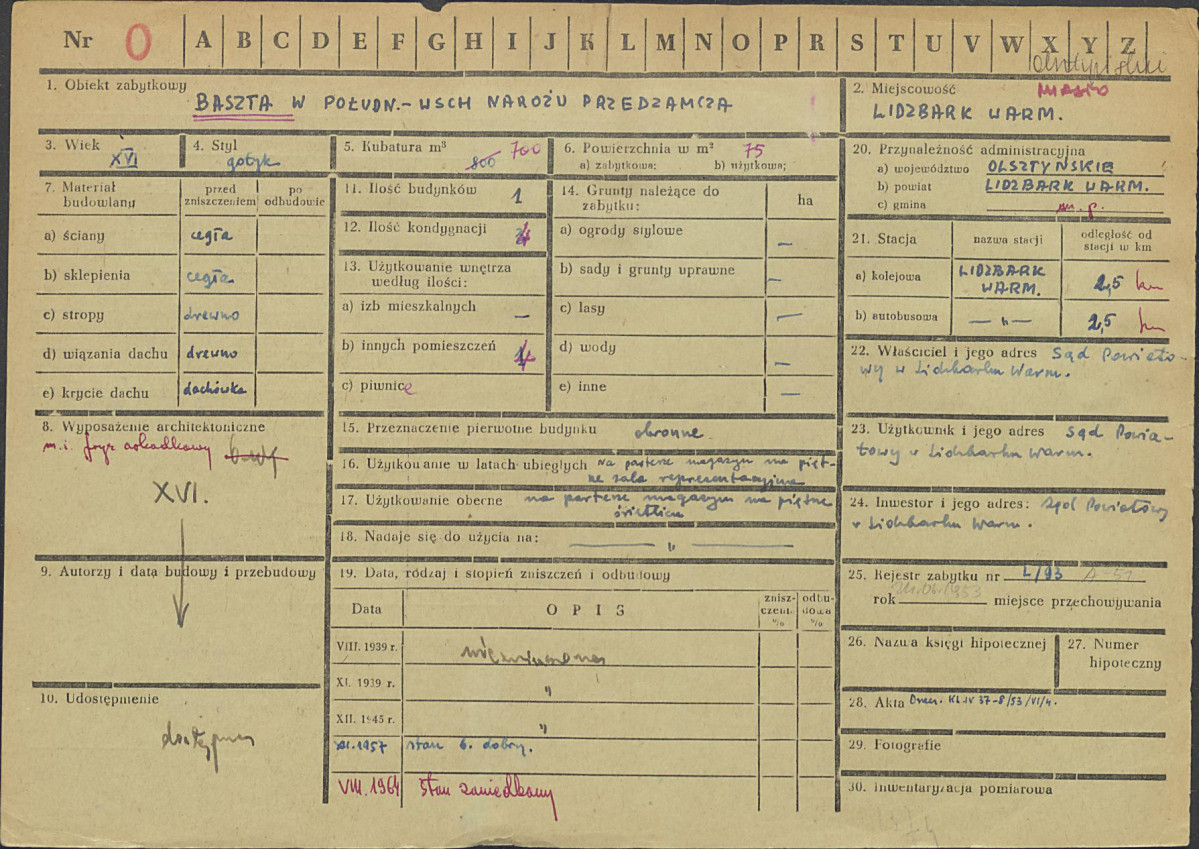 Nr 0 A B C D E F G H I J K L M N O P R S T U V W X Y Z
1. Obiekt zabytkowy
BASZTA W POŁUDN.-WSCH NAROŻU PRZEDZAMCZA
2. Miejscowość MIASTO
LIDZBARK WARM.
3. Wiek
XVI
4. Styl
gotyk
5. Kubatura m³
800 700
6. Powierzchnia w m² 75
a) zabytkowa: b) użytkowa:
7. Materiał budowlany
przed zniszczeniem
po odbudowie
a) ściany cegła
b) sklepienia cegła
c) stropy drewno
d) wiązania dachu drewno
e) krycie dachu dachówka
8. Wyposażenie architektoniczne
m.i. fryz arkadkowy
XVI.
9. Autorzy i data budowy i przebudowy
10. Udostępnienie
dostępna
11. Ilość budynków 1
12. Ilość kondygnacji 4
13. Użytkowanie wnętrza według ilości:
a) izb mieszkalnych –
b) innych pomieszczeń 4
c) piwnice
14. Grunty należące do zabytku:
ha
a) ogrody stylowe –
b) sady i grunty uprawne –
c) lasy –
d) wody –
e) inne –
15. Przeznaczenie pierwotne budynku obronne
16. Użytkowanie w latach ubiegłych na parterze magazyn na pięt-
rze sala reprezentacyjna
17. Użytkowanie obecne na parterze magazyn na piętrze
świetlica
18. Nadaje się do użycia na: — „ —
19. Data, rodzaj i stopień zniszczeń i odbudowy
Data OPIS zniszczeń % odbudowa %
VIII. 1939 r. niezniszczona
XI. 1939 r. „
XII. 1945 r. „
XII.1957 stan b. dobry.
VIII.1964 stan zaniedbany
20. Przynależność administracyjna
a) województwo OLSZTYŃSKIE
b) powiat LIDZBARK WARM.
c) gmina m. p.
21. Stacja
nazwa stacji
odległość od stacji w km
a) kolejowa LIDZBARK WARM. 2,5 km
b) autobusowa — „ — 2,5 km
22. Właściciel i jego adres Sąd Powiato-
wy w Lidzbarku Warm.
23. Użytkownik i jego adres Sąd Powia-
towy w Lidzbarku Warm.
24. Inwestor i jego adres: Sąd Powiatowy
w Lidzbarku Warm.
25. Rejestr zabytku nr L/93 A-51
rok 1953 miejsce przechowywania
26. Nazwa księgi hipotecznej
27. Numer hipoteczny
28. Akta Orzecz. KL.IV 37-8/53/VI/4.
29. Fotografie
30. Inwentaryzacja pomiarowa